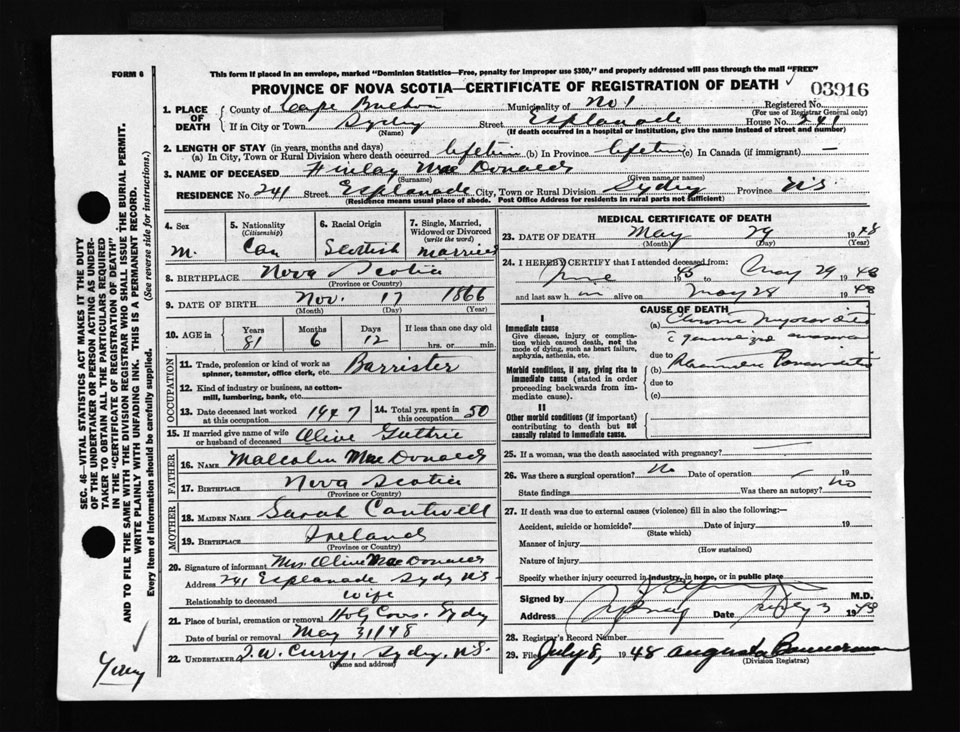 FORM 6
This form if placed in an envelope, marked "Dominion Statistics—Free, penalty for improper use $300," and properly addressed will pass through the mail "FREE"
PROVINCE OF NOVA SCOTIA—CERTIFICATE OF REGISTRATION OF DEATH
03916
1. PLACE OF DEATH
County of Cape Breton Municipality of No 1 Registered No.
(For use of Registrar General only)
If in City or Town Sydney Street Esplanade House No. 241
(Name) (If death occurred in a hospital or institution, give the name instead of street and number)
2. LENGTH OF STAY (in years, months and days)
(a) In City, Town or Rural Division where death occurred lifetime (b) In Province lifetime (c) In Canada (if immigrant) —
3. NAME OF DECEASED Finlay MacDonald
(Surname) (Given name or names)
RESIDENCE No. 241 Street Esplanade City, Town or Rural Division Sydney Province N.S.
(Residence means usual place of abode. Post Office Address for residents in rural parts not sufficient)
4. Sex M.
5. Nationality (Citizenship) Can
6. Racial Origin Scottish
7. Single, Married, Widowed or Divorced (write the word) Married
8. BIRTHPLACE Nova Scotia
(Province or Country)
9. DATE OF BIRTH Nov. 17 1866
(Month) (Day) (Year)
10. AGE in Years Months Days If less than one day old
81 6 12 hrs. or min.
OCCUPATION
11. Trade, profession or kind of work as spinner, teamster, office clerk, etc. Barrister
12. Kind of industry or business, as cotton-mill, lumbering, bank, etc.
13. Date deceased last worked at this occupation 1947
14. Total yrs. spent in this occupation 50
15. If married give name of wife or husband of deceased Olive Guthrie
FATHER
16. NAME Malcolm MacDonald
17. BIRTHPLACE Nova Scotia
(Province or Country)
MOTHER
18. MAIDEN NAME Sarah Cantwell
19. BIRTHPLACE Ireland
(Province or Country)
20. Signature of informant Mrs. Olive MacDonald
Address 241 Esplanade Sydney N.S.
Relationship to deceased Wife
21. Place of burial, cremation or removal Holy Cross. Sydney
Date of burial or removal May 31/48
22. UNDERTAKER T.W. Curry, Sydney, N.S.
(Name and address)
MEDICAL CERTIFICATE OF DEATH
23. DATE OF DEATH May 29 1948
(Month) (Day) (Year)
24. I HEREBY CERTIFY that I attended deceased from:
June 1945 to May 29 1948
and last saw him alive on May 28 1948
CAUSE OF DEATH
I
Immediate cause
Give disease, injury or complication which caused death, not the mode of dying, such as heart failure, asphyxia, asthenia, etc.
(a) Chronic
generalized
due to
Morbid conditions, if any, giving rise to immediate cause (stated in order proceeding backwards from immediate cause).
(b)
due to
(c)
II
Other morbid conditions (if important) contributing to death but not causally related to immediate cause.
25. If a woman, was the death associated with pregnancy?
26. Was there a surgical operation? No Date of operation — 19
State findings Was there an autopsy? No
27. If death was due to external causes (violence) fill in also the following:—
Accident, suicide or homicide? Date of injury 19
(State which)
Manner of injury
(How sustained)
Nature of injury
Specify whether injury occurred in industry, in home, or in public place
Signed by M.D.
Address Sydney Date July 3 1948
28. Registrar's Record Number
29. Filed July 8, 1948 Augusta Bannerman
(Division Registrar)
SEC. 46—VITAL STATISTICS ACT MAKES IT THE DUTY
OF THE UNDERTAKER OR PERSON ACTING AS UNDERTAKER TO OBTAIN ALL THE PARTICULARS REQUIRED
IN THE "CERTIFICATE OF REGISTRATION OF DEATH"
AND TO FILE THE SAME WITH THE DIVISION REGISTRAR WHO SHALL ISSUE THE BURIAL PERMIT.
WRITE PLAINLY WITH UNFADING INK. THIS IS A PERMANENT RECORD.
Every item of information should be carefully supplied. (See reverse side for instructions.)